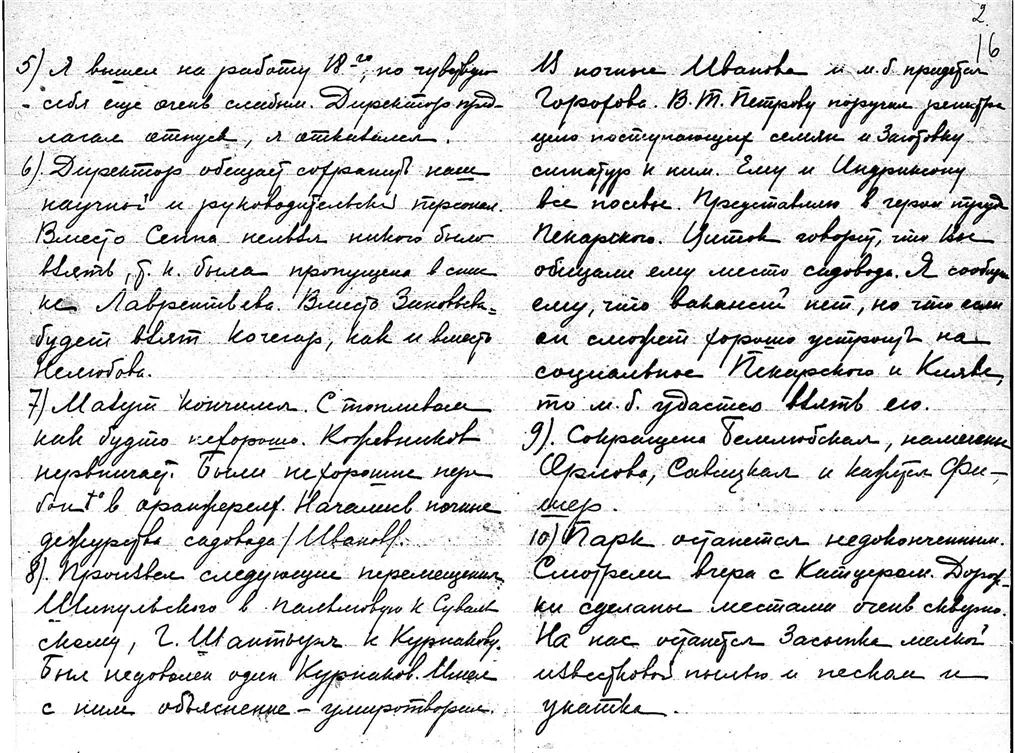 2.
16
5) Я вышел на работу 18-го, но чувствую
себя еще очень слабым. Директор пред-
лагал отпуск, я отказался.
6). Директор обещает сохранить наш
научный и руководительский персонал.
Вместо Сепна нельзя никого было
взять, т. к. была пропущена в спис
ке Лаврентьева. Вместо Зиновьева
будет взят кочегар, как и вместо
Нелюбова.
7) Мазут кончился. С топливом
как будто нехорошо. Кожевников
нервничает. Были нехорошие пере
бои t° в оранжереях. Начались ночные
дежурства садовода /Иванов/.
8). Произвел следующие перемещения
Шипульского в пальмовую к Суваль
скому, Г. к Курнакову.
Был недоволен один Курнаков. Имел
с ним объяснение – умиротворил.
Из ночные Иванова и м.б. придется
Горохова. В.Т. Петрову поручил регистра
цию поступающих семян и заготовку
сигнатур к ним. Ему и Индриксону
все посевы. Представлю в герои труда
Пекарского. Цитов говорит, что Вы
обещали ему место садовода. Я сообщил
ему, что вакансий нет, но что если
он сможет хорошо устроить на
социальное Пекарского и Княве,
то м.б. удастся взять его.
9). Сокращена Белелюбская, намечены
Орлова, Савицкая и кажется Фи-
шер.
10) Парк останется недоконченным.
Смотрели вчера с Катцером. Дорож-
ки сделаны местами очень скверно.
На нас останется засыпка мелкой
известковой пылью и песком и
укатка.